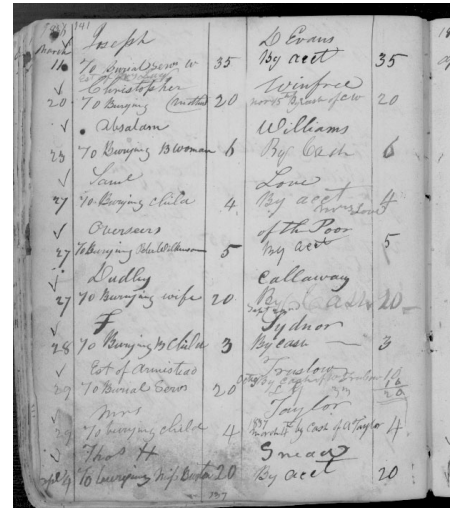 1841
Joseph D Evans
March 11 To Burial serv 35 By acct 35
Christopher Winfree
20 To Burying 20 By Cash of CW 20
Absalom Williams
23 To Burying B woman 6 By Cash 6
Saml Love
27 To Burying child 4. By acct 4
Overseers of the Poor
27 To Burying 5 By acct 5
Dudley Callaway
27 To Burying wife 20 By Cash 20
F Sydnor
28 To Burying B Child 3 By cash 3
Est of Armistead Truslow
29 To Burial Servs 20 By Cash 20
Mrs Taylor
29 To burying child 4 March by Cash of A Taylor 4.
Thos H Snead
apl 9 To burying Miss 20 By acct 20